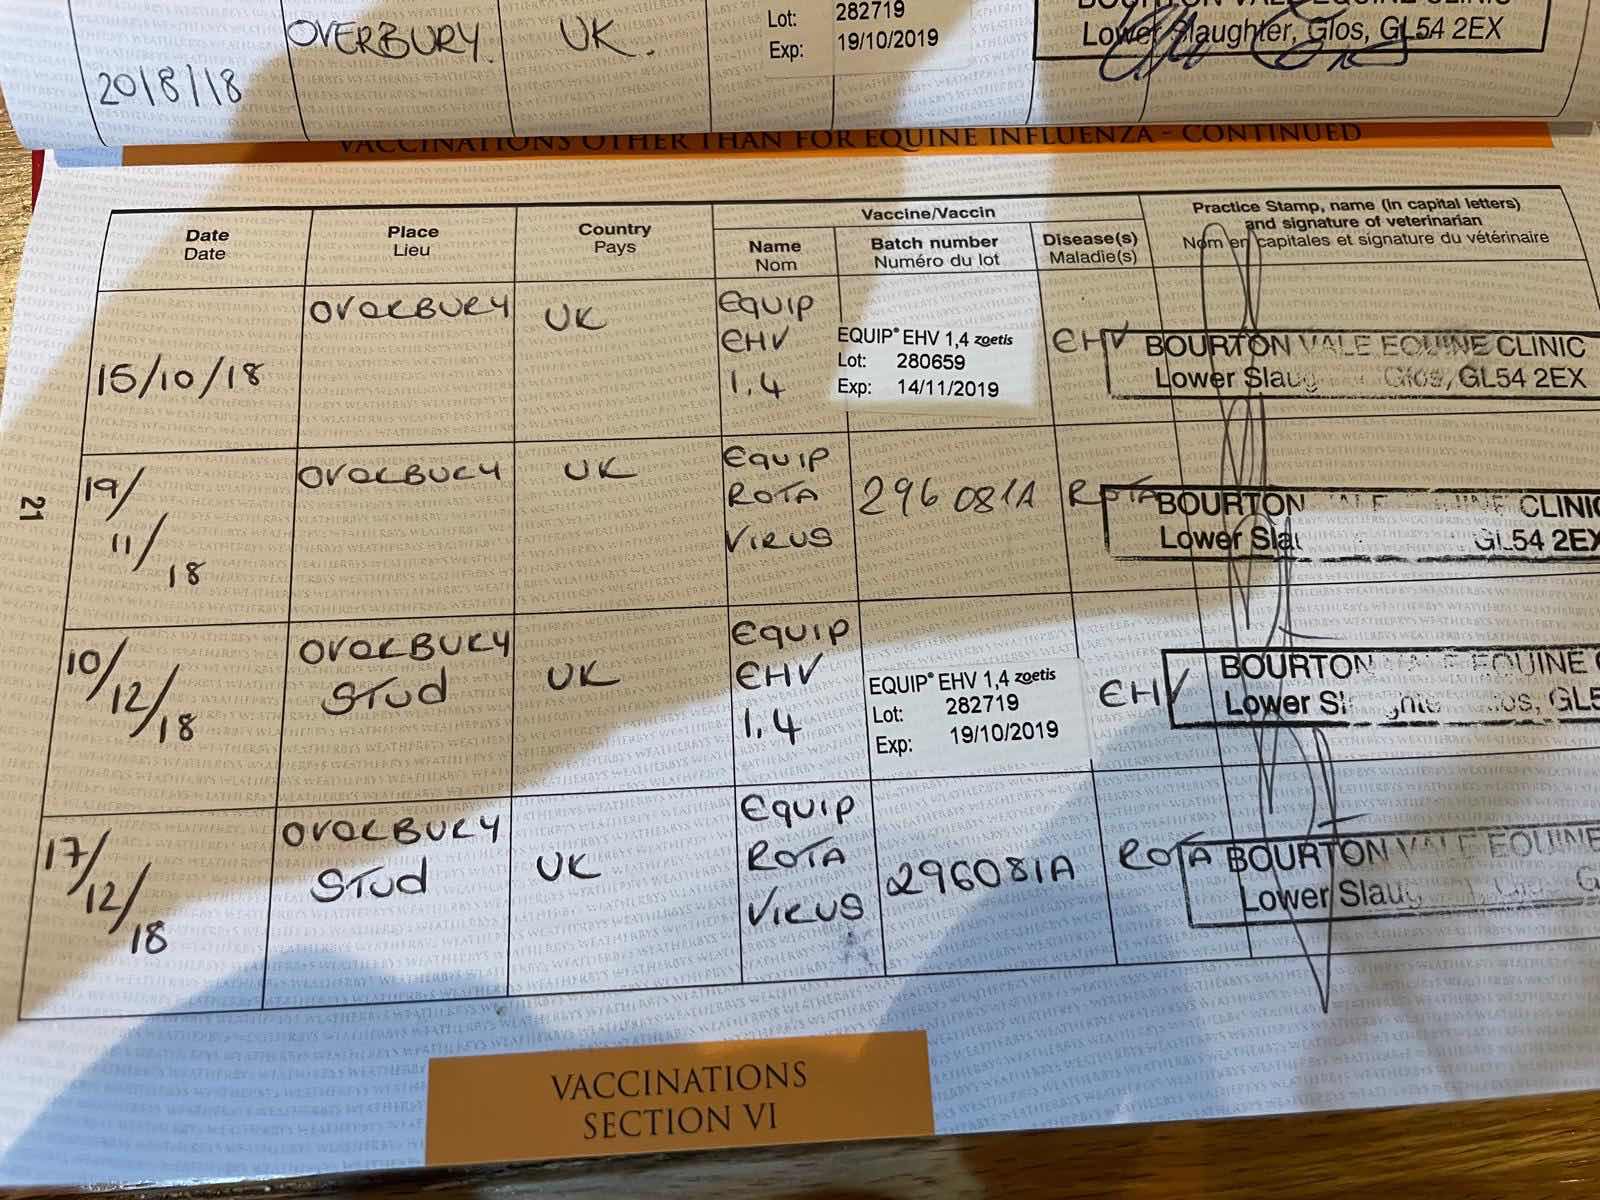 20/8/18
OVERBURY
UK.
Lot: 282719
Exp: 19/10/2019
Lower Slaughter, Glos, GL54 2EX
VACCINATIONS OTHER THAN FOR EQUINE INFLUENZA - CONTINUED
Date
Date
Place
Lieu
Country
Pays
Vaccine/Vaccin
Name
Nom
Batch number
Numéro du lot
Disease(s)
Maladie(s)
Practice Stamp, name (in capital letters)
and signature of veterinarian
Nom en capitales et signature du vétérinaire
15/10/18
OVERBURY
UK
EQUIP
EHV
1,4
EQUIP® EHV 1,4 zoetis
Lot: 280659
Exp: 14/11/2019
EHV
BOURTON VALE EQUINE CLINIC
Lower Slaug Glos, GL54 2EX
19/
11/
18
OVERBURY
UK
EQUIP
ROTA
VIRUS
296 081A
ROTA
BOURTON VALE EQUINE CLINIC
Lower Slau GL54 2EX
21
10/
12/
18
OVERBURY
STUD
UK
EQUIP
EHV
1,4
EQUIP® EHV 1,4 zoetis
Lot: 282719
Exp: 19/10/2019
EHV
BOURTON VALE EQUINE
Lower Sl
17/
12/
18
OVERBURY
STUD
UK
EQUIP
ROTA
VIRUS
296081A
ROTA
BOURTON VALE EQUINE
Lower Slaug
VACCINATIONS
SECTION VI